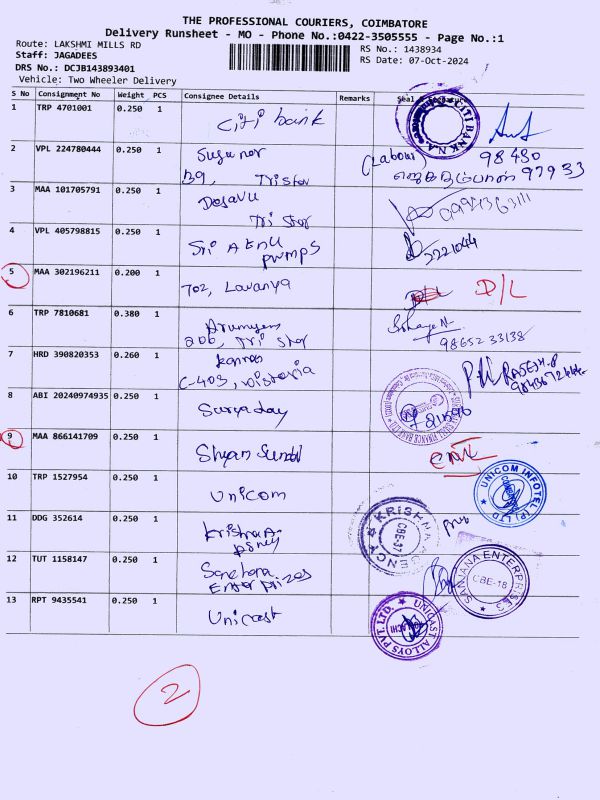 THE PROFESSIONAL COURIERS, COIMBATORE
Delivery Runsheet - MO - Phone No.:0422-3505555 - Page No.:1
Route: LAKSHMI MILLS RD
RS No.: 1438934
Staff: JAGADEES
RS Date: 07-Oct-2024
DRS No.: DCJB143893401
Vehicle: Two Wheeler Delivery
S No Consignment No Weight PCS Consignee Details Remarks Seal & Signature
1 TRP 4701001 0.250 1 Citi bank
CITI BANK N.A.
2 VPL 224780444 0.250 1
B9, Tristar
(Labour) 98430 97933
3 MAA 101705791 0.250 1 Dejavu
Tri star
4 VPL 405798815 0.250 1 Sri
pumps
5 MAA 302196211 0.200 1 702, Lavanya
D/L
6 TRP 7810681 0.380 1
206, Tri star
98652 33138
7 HRD 390820353 0.260 1 kannan
C-403, victoria
RAJESH.P
8 ABI 20240974935 0.250 1 Suryaday
9 MAA 866141709 0.250 1 Shyam Sundar
10 TRP 1527954 0.250 1 Unicom
UNICOM INFOTEL (P) LTD
11 DDG 352614 0.250 1 Krishna
KRISHNA AGENCY
CBE-37
12 TUT 1158147 0.250 1
Enterprizes
SANJANA ENTERPRISES
CBE-18
13 RPT 9435541 0.250 1 Unicast
UNICAST ALLOYS PVT. LTD.
2